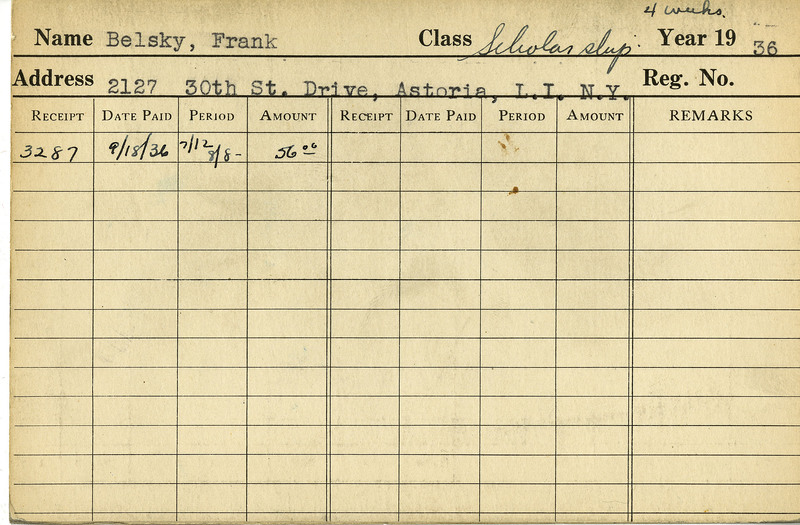 4 weeks.
Name Belsky, Frank Class Scholarship. Year 19 36
Address 2127 30th St. Drive, Astoria, L.I. N.Y. Reg. No.
RECEIPT DATE PAID PERIOD AMOUNT RECEIPT DATE PAID PERIOD AMOUNT REMARKS
3287 9/18/36 7/12 8/8- 56 00